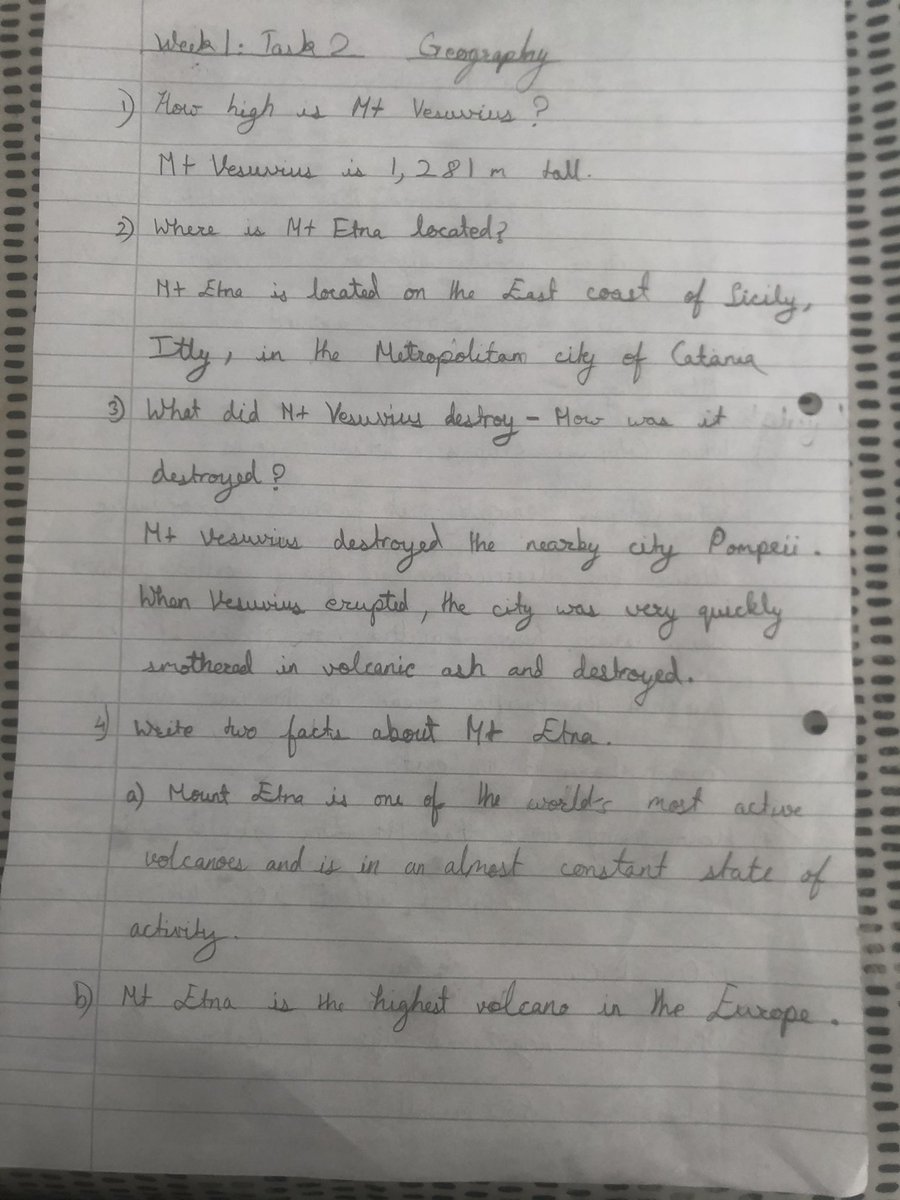 Week 1: Task 2 Geography
1) How high is Mt Vesuvius?
Mt Vesuvius is 1,281 m tall.
2) Where is Mt Etna located?
Mt Etna is located on the East coast of Sicily,
Itly, in the Metropolitan city of Catania
3) What did Mt Vesuvius destroy - How was it
destroyed?
Mt Vesuvius destroyed the nearby city Pompeii.
When Vesuvius erupted, the city was very quickly
smothered in volcanic ash and destroyed.
4) Write two facts about Mt Etna.
a) Mount Etna is one of the world's most active
volcanoes and is in an almost constant state of
activity.
b) Mt Etna is the highest volcano in the Europe.